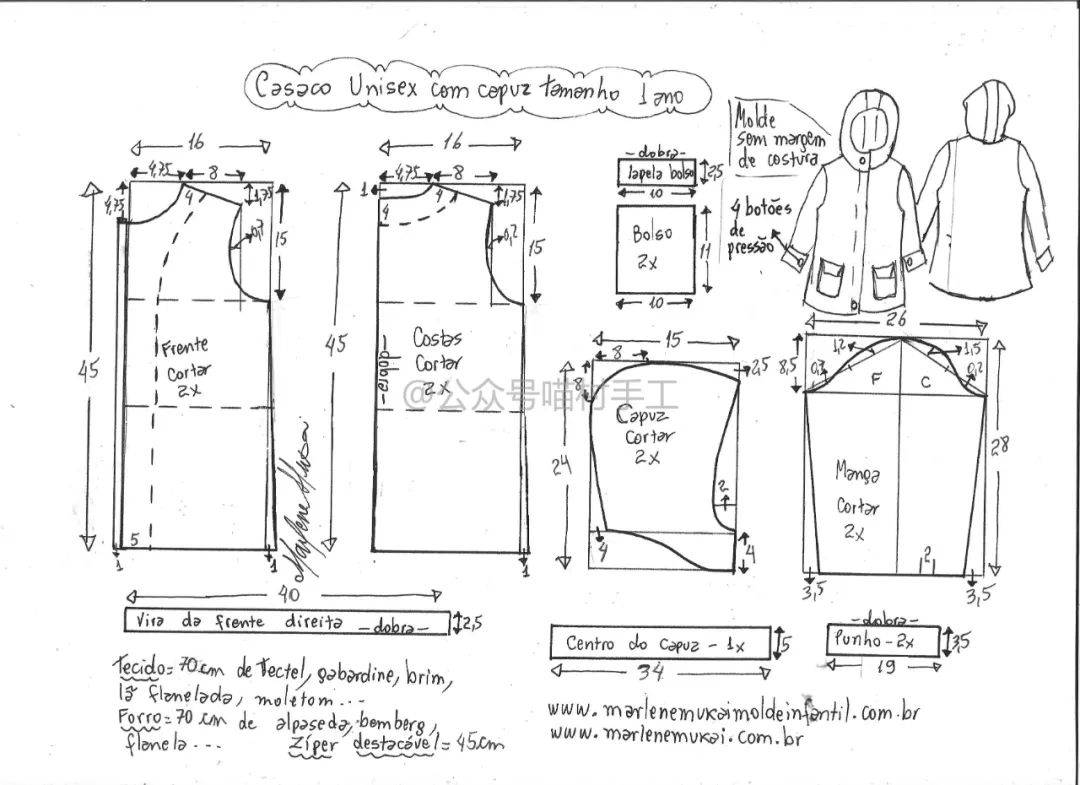 Casaco Unisex com capuz tamanho 1 ano
16
4,75
8
4,75
4
1,75
0,7
15
45
Frente
Cortar
2x
5
1
1
Marlene Mukai
16
4,75
8
1
4
4
1,75
0,2
15
45
-dobra-
Costas
Cortar
2x
1
-dobra-
lapela bolso
2,5
10
Bolso
2x
11
10
Molde
sem margem
de costura
4 botões
de
pressão
15
8
8
2,5
24
Capuz
Cortar
2x
2
4
4
26
8,5
0,3
1,2
1,5
0,2
F
C
28
Manga
Cortar
2x
2
3,5
3,5
@公众号喵村手工
40
Vira da frente direita -dobra-
2,5
Centro do capuz - 1x
5
34
-dobra-
Punho-2x
3,5
19
Tecido=70cm de Tectel, gabardine, brim,
lã flanelada, moletom...
Forro=70 cm de alpaseda, bemberg,
flanela... Zíper destacável=45cm
www.marlenemukaimoldeinfantil.com.br
www.marlenemukai.com.br